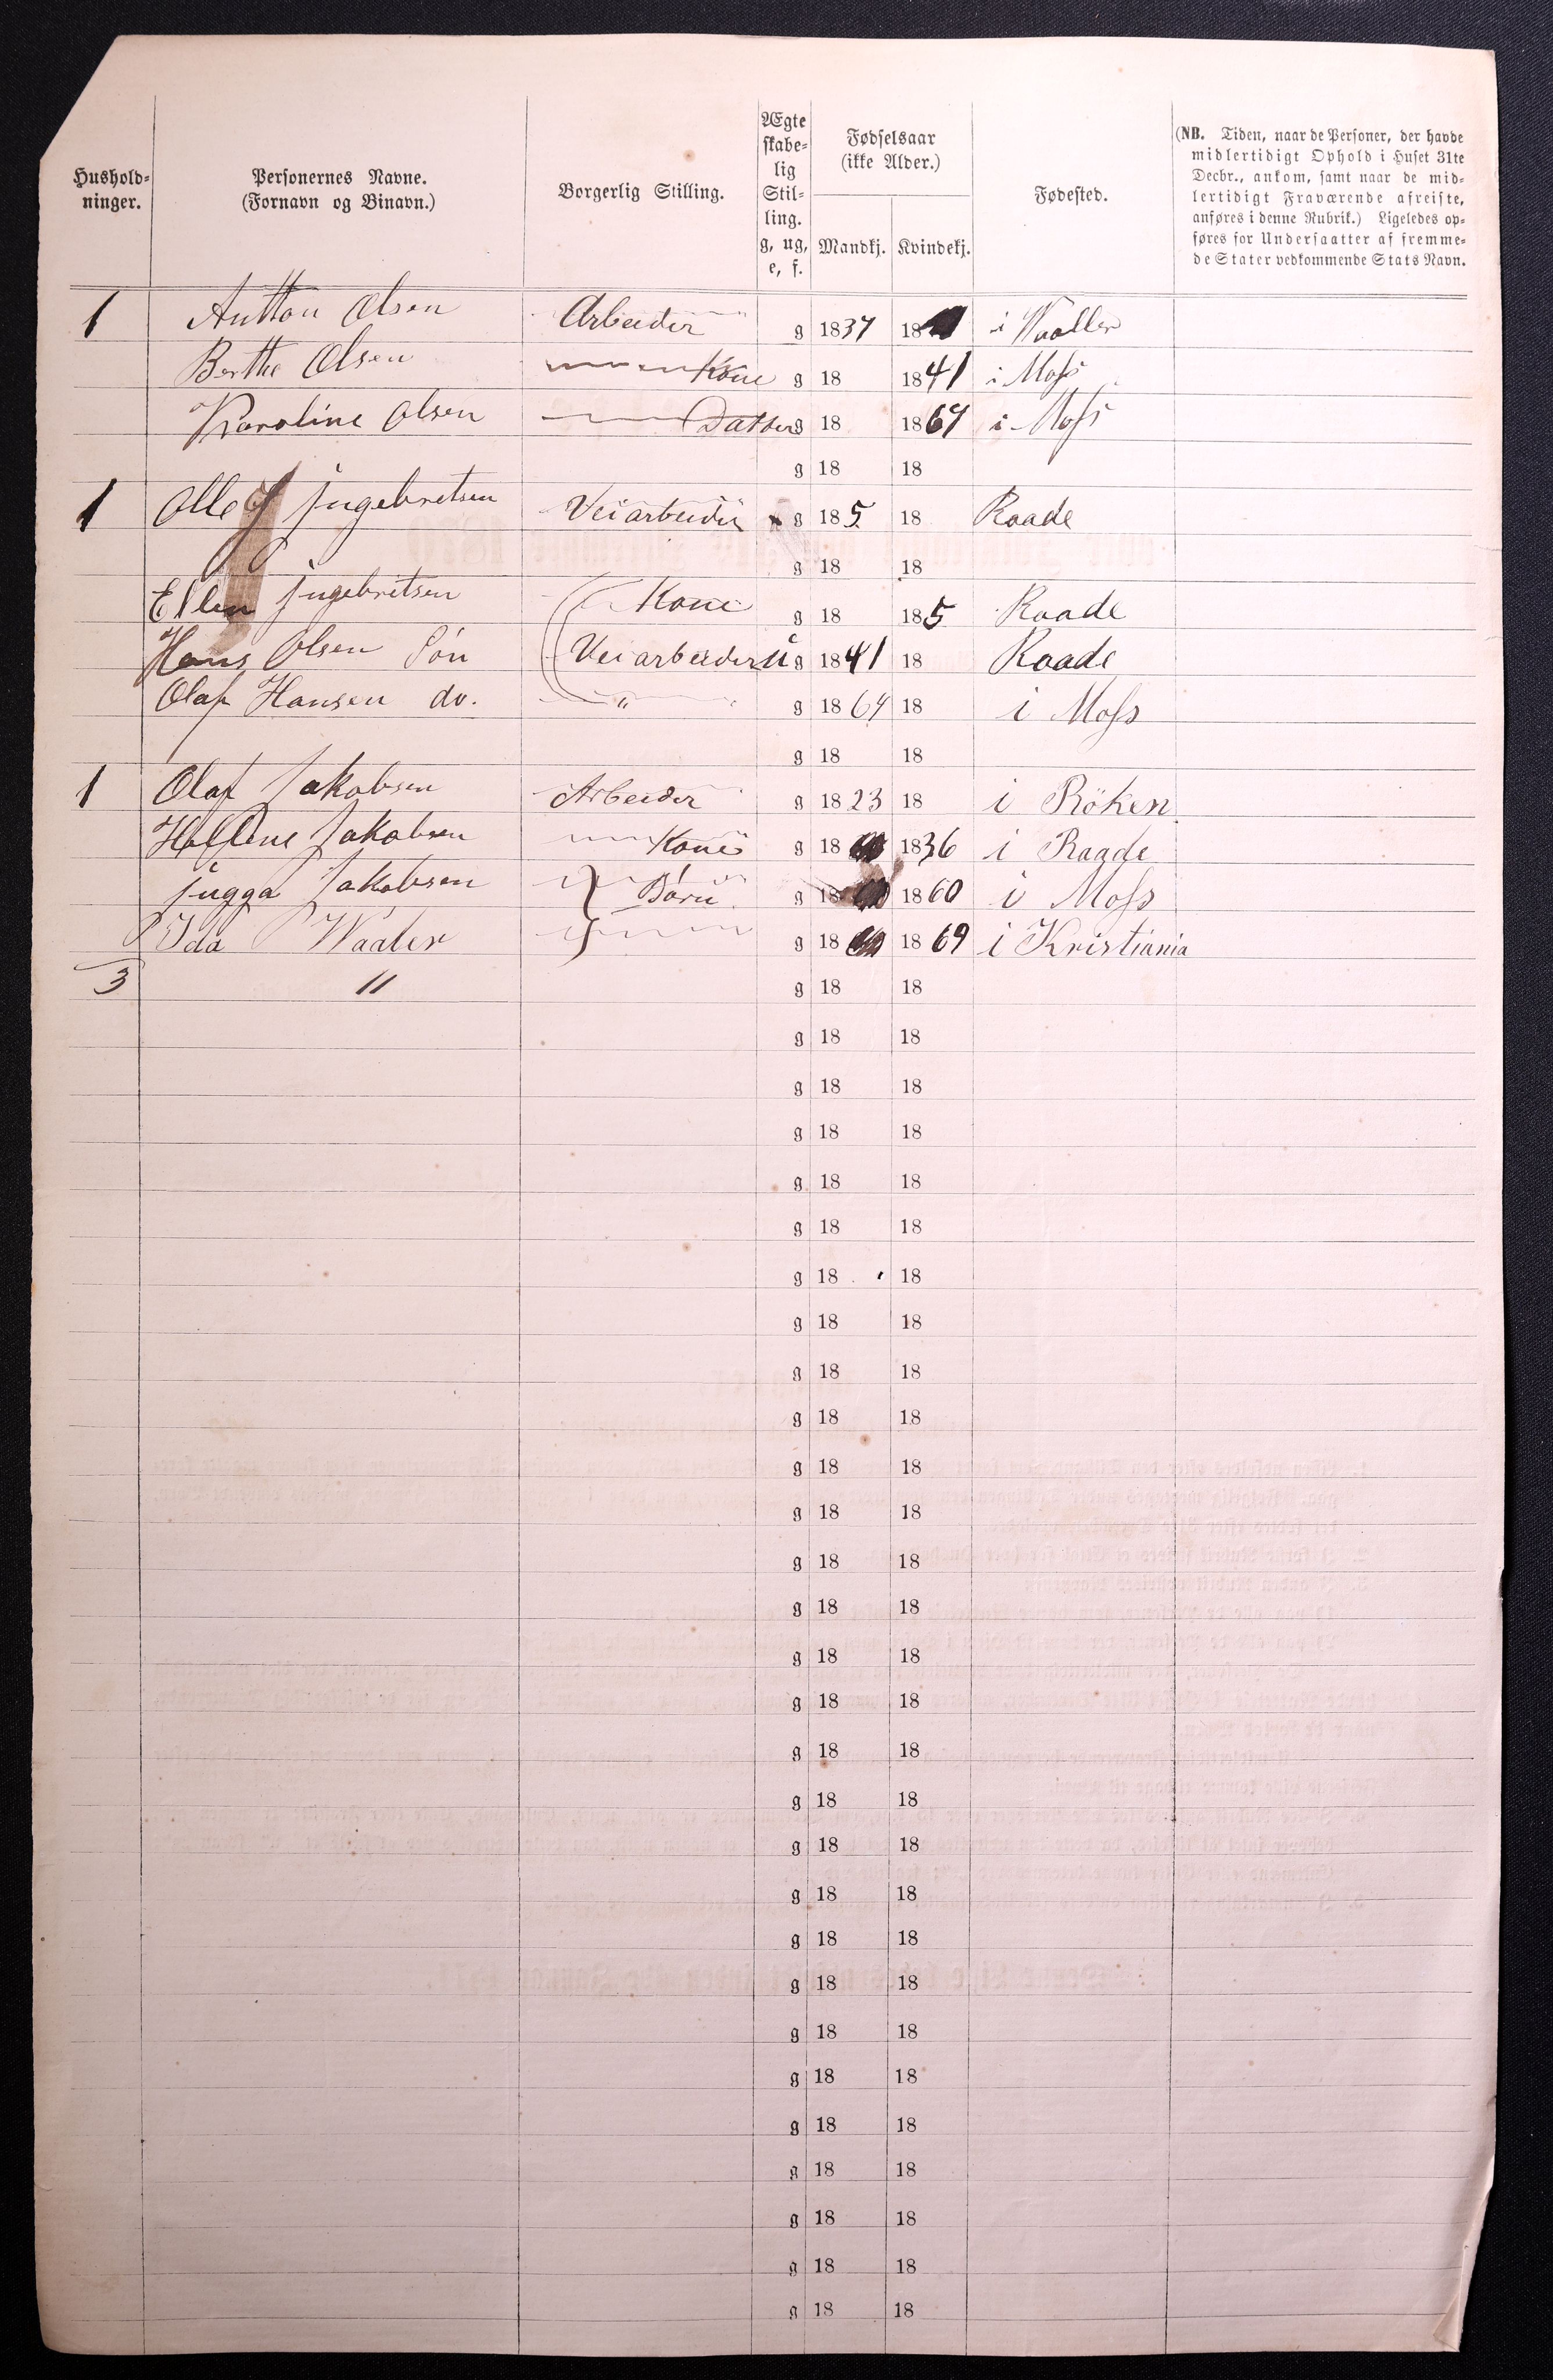 Hushold-
ninger.
Personernes Navne.
(Fornavn og Binavn.)
Borgerlig Stilling.
Ægte
skabe-
lig
Stil-
ling.
g, ug,
e, f.
Fødselsaar
(ikke Alder.)
Mandkj. Kvindekj.
Fødested.
(NB. Tiden, naar de Personer, der havde
midlertidigt Ophold i Huset 31te
Decbr., ankom, samt naar de mid-
lertidigt Fraværende afreiste,
anføres i denne Rubrik.) Ligeledes op-
føres for Undersaatter af fremme-
de Stater vedkommende Stats Navn.
1 Antton Olsen Arbeider g 1837 18 i Vaaller
Berthe Olsen Kone g 18 1841 i Moss
Karoline Olsen Datter g 18 1867 i Moss
g 18 18
1 Olle jngebretsen Veiarbeider g 185 18 Raade
g 18 18
Ellen jngebritsen Kone g 18 185 Raade
Hans Olsen Sön Veiarbeider ug 1841 18 Raade
Olaf Hansen do. " g 1864 18 i Moss
g 18 18
1 Olaf Jakobsen Arbeider g 1823 18 i Röken
Hellene Jakobsen Kone g 18 1836 i Raade
jngga Jakobsen Börn g 18 1860 i Moss
Ida Waaler g 18 1869 i Kristiania
3 11 g 18 18
g 18 18
g 18 18
g 18 18
g 18 18
g 18 18
g 18 18
g 18 18
g 18 18
g 18 18
g 18 18
g 18 18
g 18 18
g 18 18
g 18 18
g 18 18
g 18 18
g 18 18
g 18 18
g 18 18
g 18 18
g 18 18
g 18 18
g 18 18
g 18 18
g 18 18
g 18 18
g 18 18
g 18 18